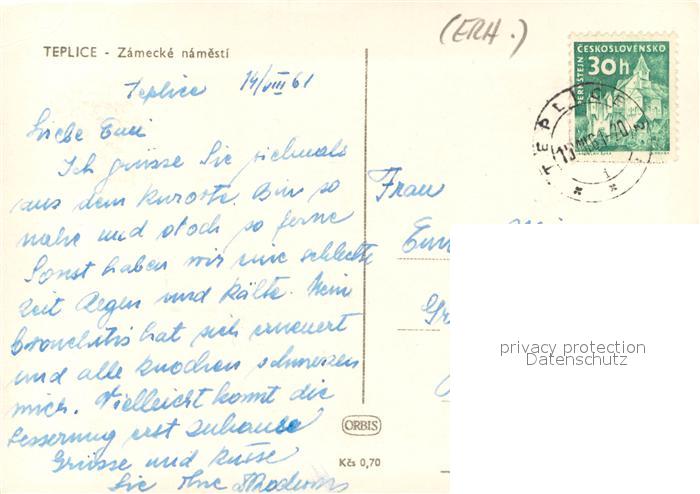 (ERH.)
TEPLICE - Zámecké náměstí
Teplice 14/VIII 61
Liebe Emi
Ich grüsse Sie vielmals
aus dem Kurorte. Bin so
nahe und doch so ferne
Sonst haben wir eine schlechte
Zeit Regen und Kälte. Mein
bronchitis hat sich erneuert
und alle Knochen schmerzen
mich. Vielleicht kommt die
Besserung erst zuhause
Grüsse und Küsse
Sie Ihre
ČESKOSLOVENSKO
30h
PERNŠTEJN
TEPLICE
1
Frau
ORBIS
Kčs 0,70
privacy protection
Datenschutz